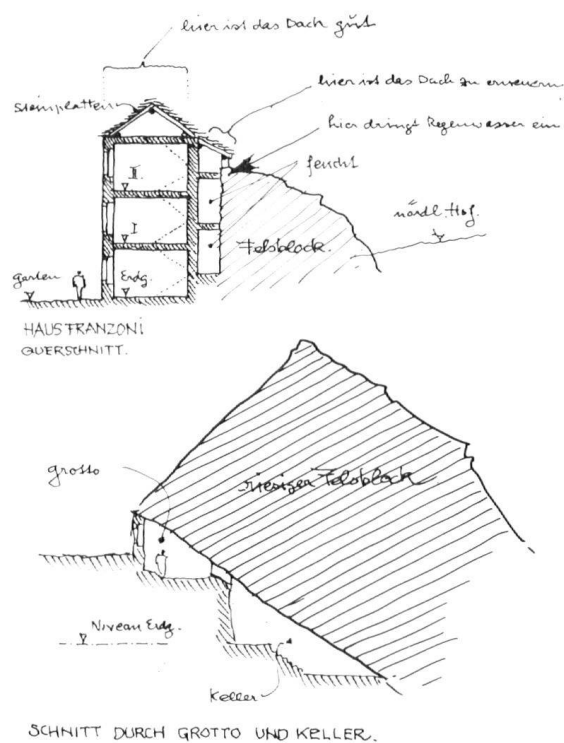 hier ist das Dach gut
Steinplatten
hier ist das Dach zu erneuern
hier dringt Regenwasser ein
feucht
nördl. Hof.
II
I
Felsblock.
Garten
Erdg.
HAUS FRANZONI
QUERSCHNITT.
grotto
riesiger Felsblock
Niveau Erdg.
Keller
SCHNITT DURCH GROTTO UND KELLER.